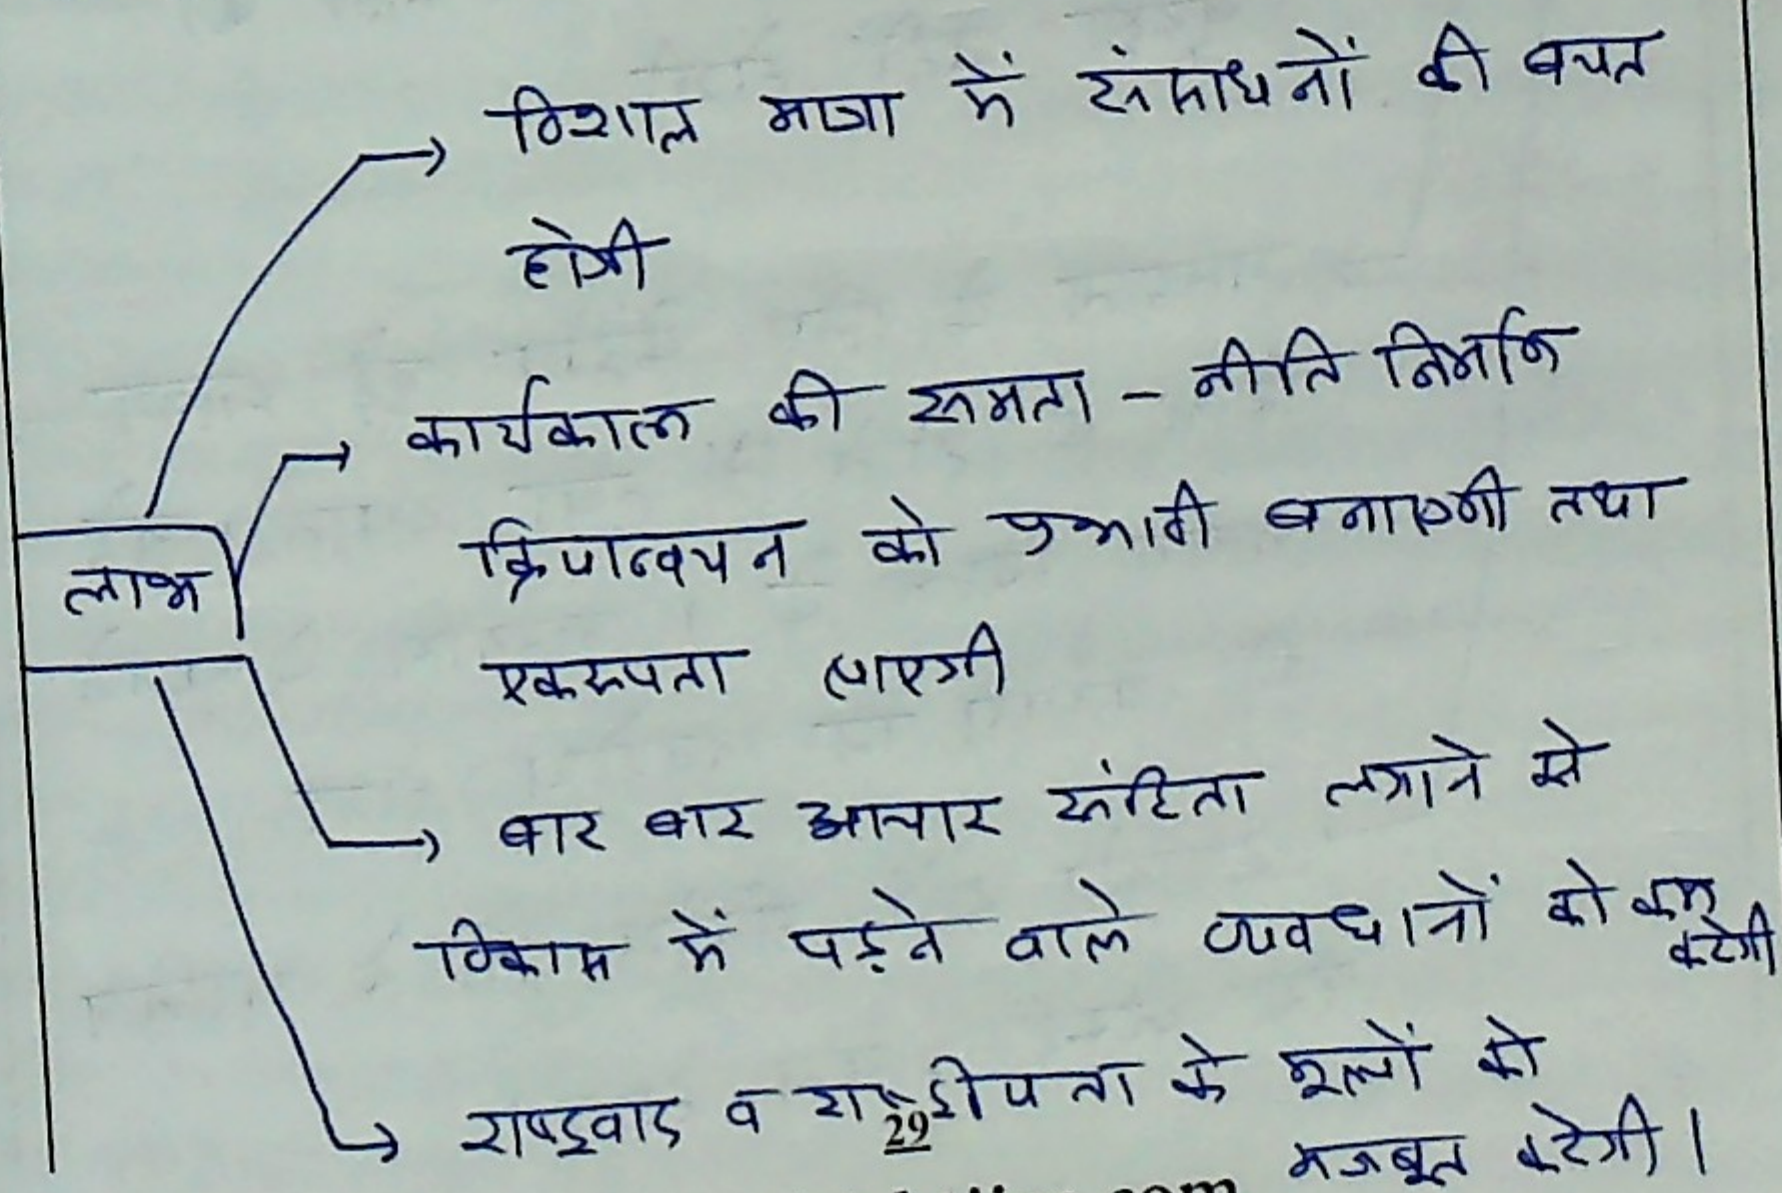 विशाल मात्रा में संसाधनों की बचत
होगी
कार्यकाल की समता - नीति निर्माण
क्रियान्वयन को प्रभावी बनाएगी तथा
एकरूपता लाएगी
लाभ
बार बार आचार संहिता लगाने से
विकास में पड़ने वाले व्यवधानों को कम
करेगी
राष्ट्रवाद व राष्ट्रीयता के मूल्यों को
29
मजबूत करेगी।